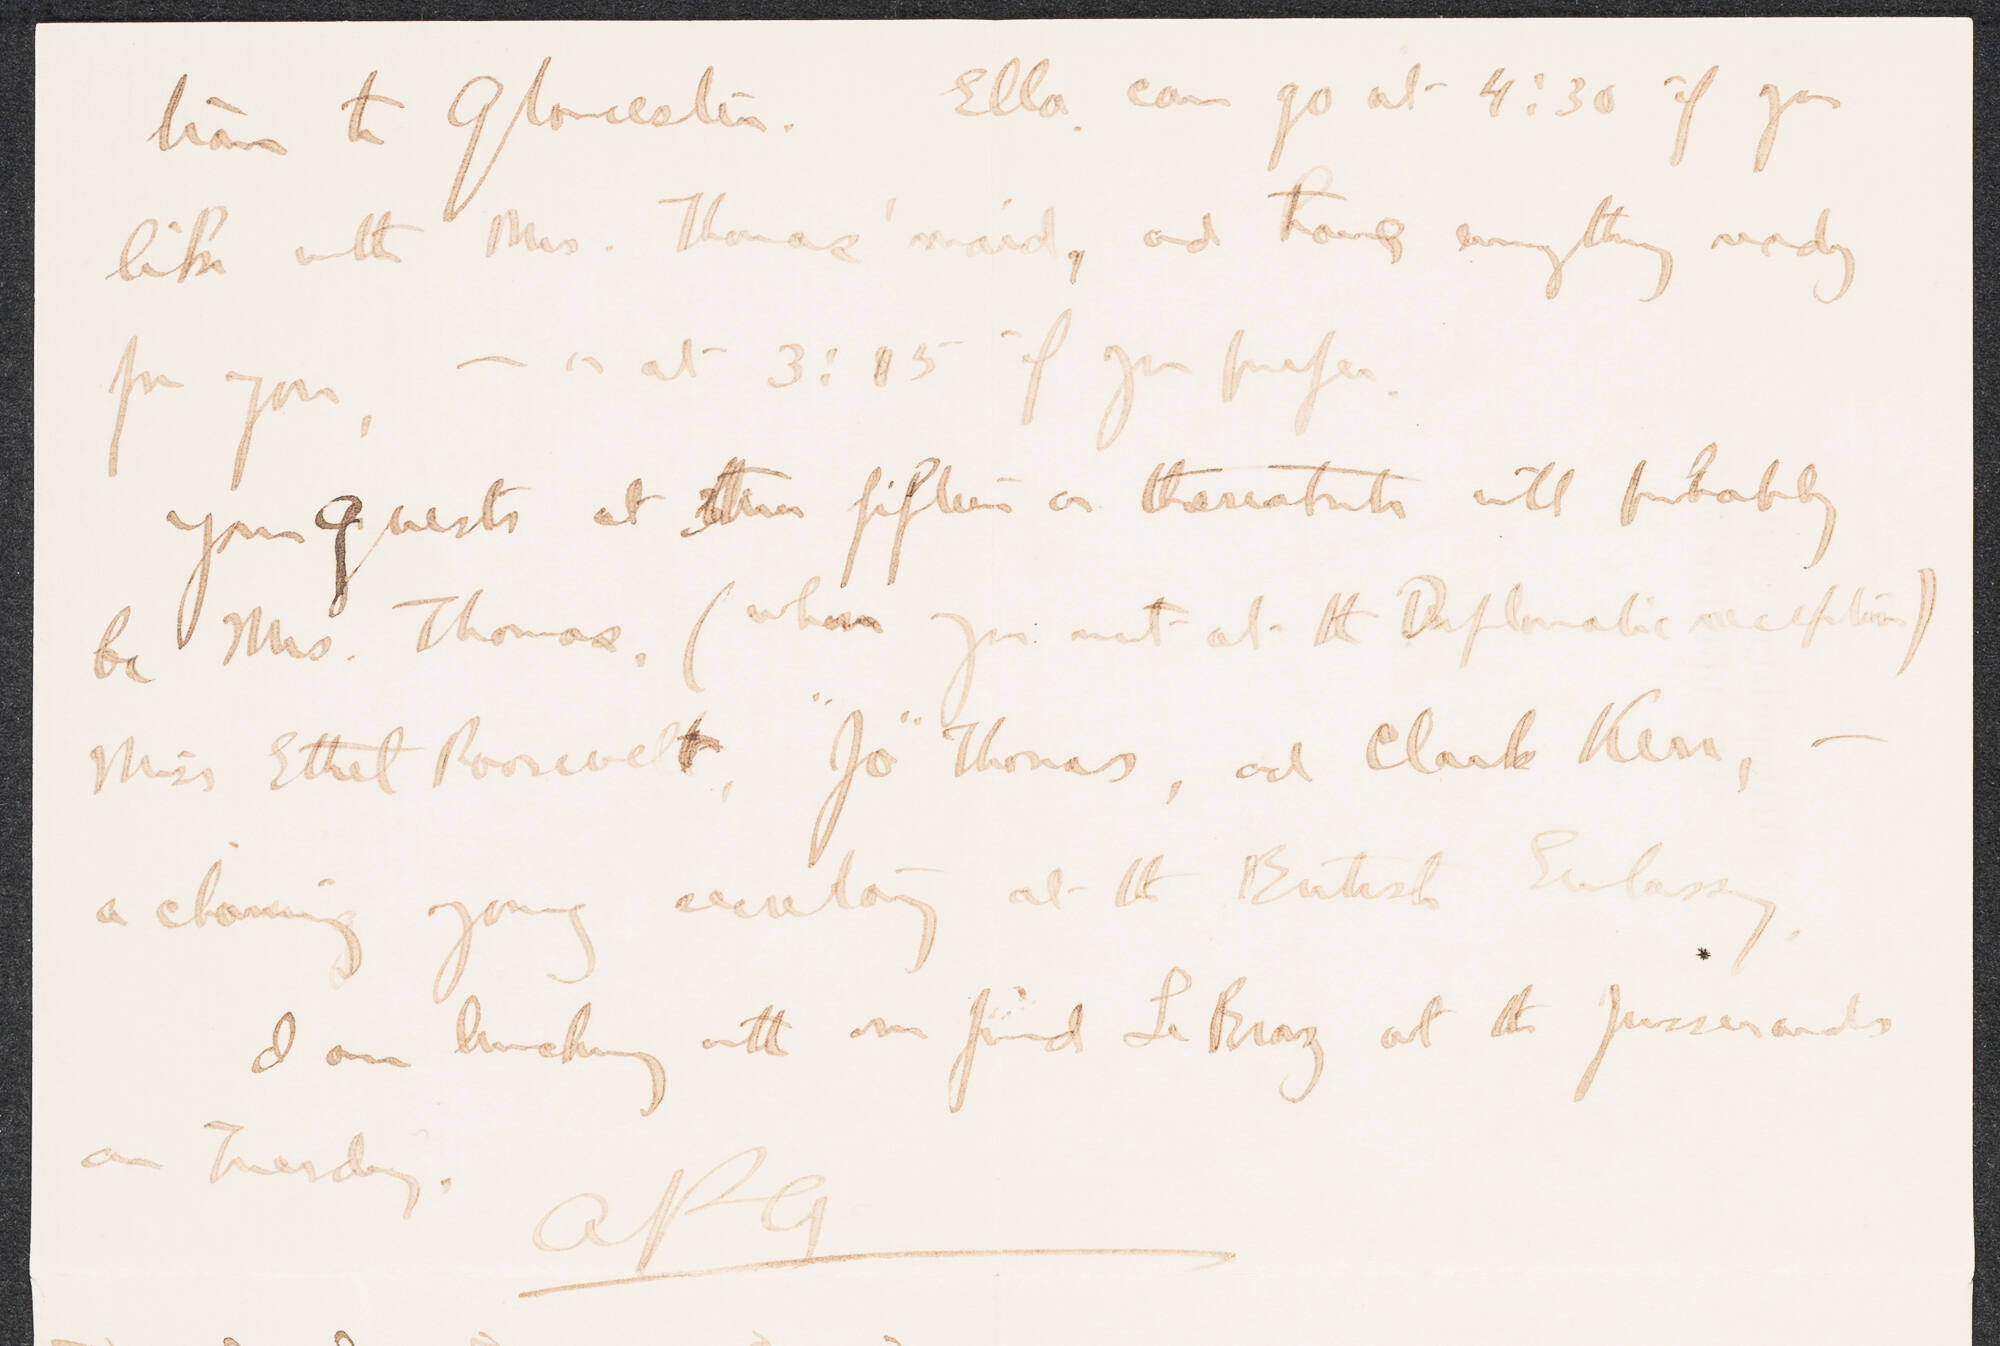 train to Gloucester. Ella can go at 4:30 if you
like with Mrs. Thomas' maid, and have everything ready
for you, — or at 3:15 if you prefer.
Your guests at three fifteen or thereabouts will probably
be Mrs. Thomas, (whom you met at the Diplomatic reception)
Miss Ethel Roosevelt, "Jo" Thomas, and Clark Kerr, —
a charming young secretary at the British Embassy.
I am lunching with our friend Le Braz at the Jusserands
on Tuesday.
APG